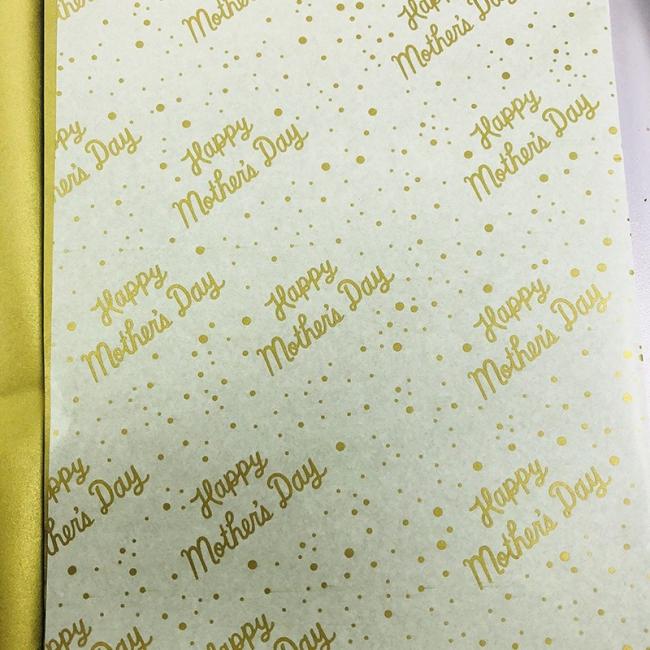 Mother's
Happy
Mother's Day
Happy
Mother's Day
Happy
Mother's Day
Happy
Mother's Day
Happy
Mother's Day
Happy
Mother's Day
Happy
Mother's Day
Happy
Mother's Day
Happy
Mother's Day
Happy
Mother's Day
Happy
Day
Happy
Day